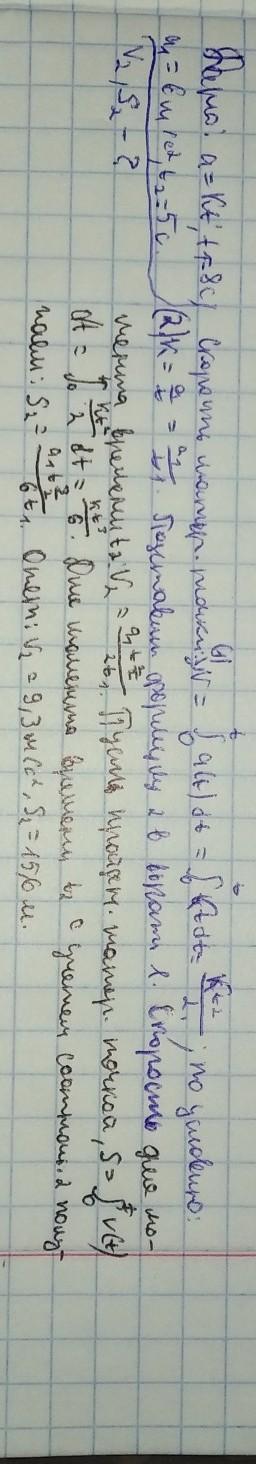 Дано: a = Kt, t1 = 8c, Скорость матер. точки: (1) V = ∫₀ᵗ a(t)dt = ∫₀ᵗ Ktdt = Kt²/2; по условию:
a1 = 6 м/c², t2 = 5c. (2) K = a/t = a1/t1. Подставим формулу 2 в 1. Скорость для мо-
V2, S2 - ?
мента времени t2: V2 = a1t2²/2t1. Путь пройден. матер. точкой, S = ∫₀ᵗ v(t)
dt = ∫₀ᵗ Kt²/2 dt = Kt³/6. Для момента времени t2 с учетом соотнош. 2 полу-
чаем: S2 = a1t2³/6t1. Ответ: V2 = 9,3 м/с², S2 = 15,6 м.